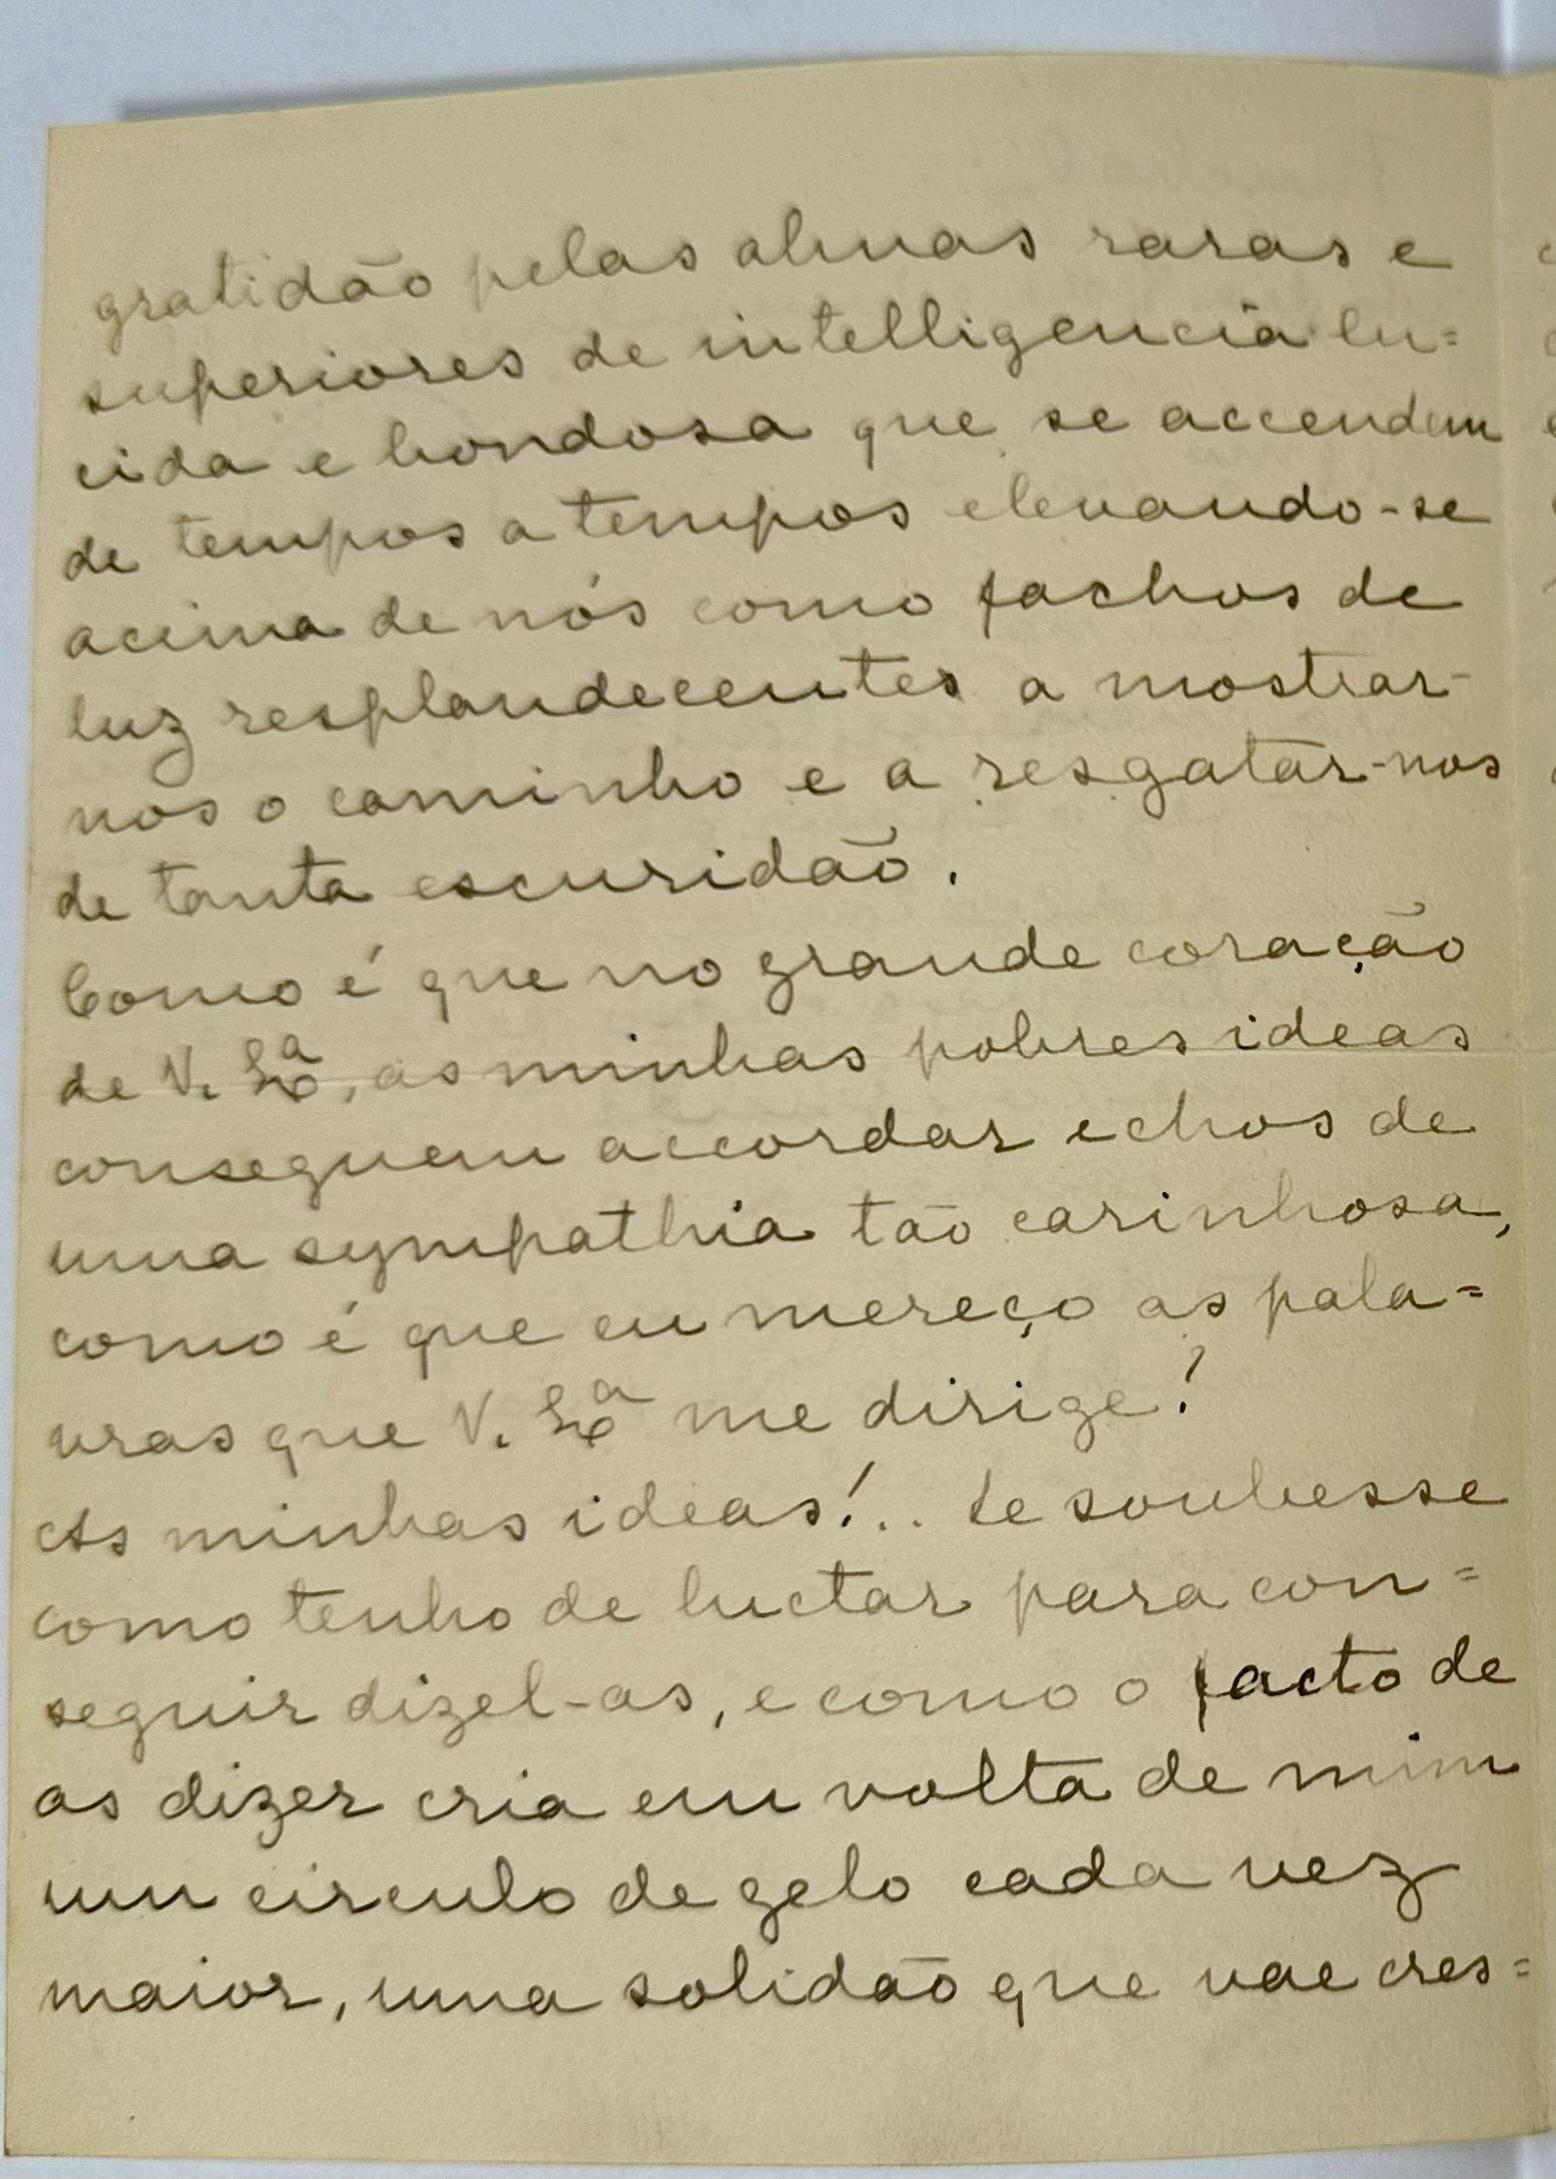 gratidão pelas almas raras e
superiores de intelligencia lu=
cida e bondosa que se accendem
de tempos a tempos elevando-se
acima de nós como fachos de
luz resplandecentes a mostrar-
nos o caminho e a resgatar-nos
de tanta escuridão.
Como é que no grande coração
de V. Exª, as minhas pobres ideas
conseguem accordar echos de
uma sympathia tão carinhosa,
como é que eu mereço as pala=
vras que V. Exª me dirige?
As minhas ideas!.. Se soubesse
como tenho de luctar para con=
seguir dizel-as, e como o facto de
as dizer cria em volta de mim
um circulo de gelo cada vez
maior, uma solidão que vae cres=